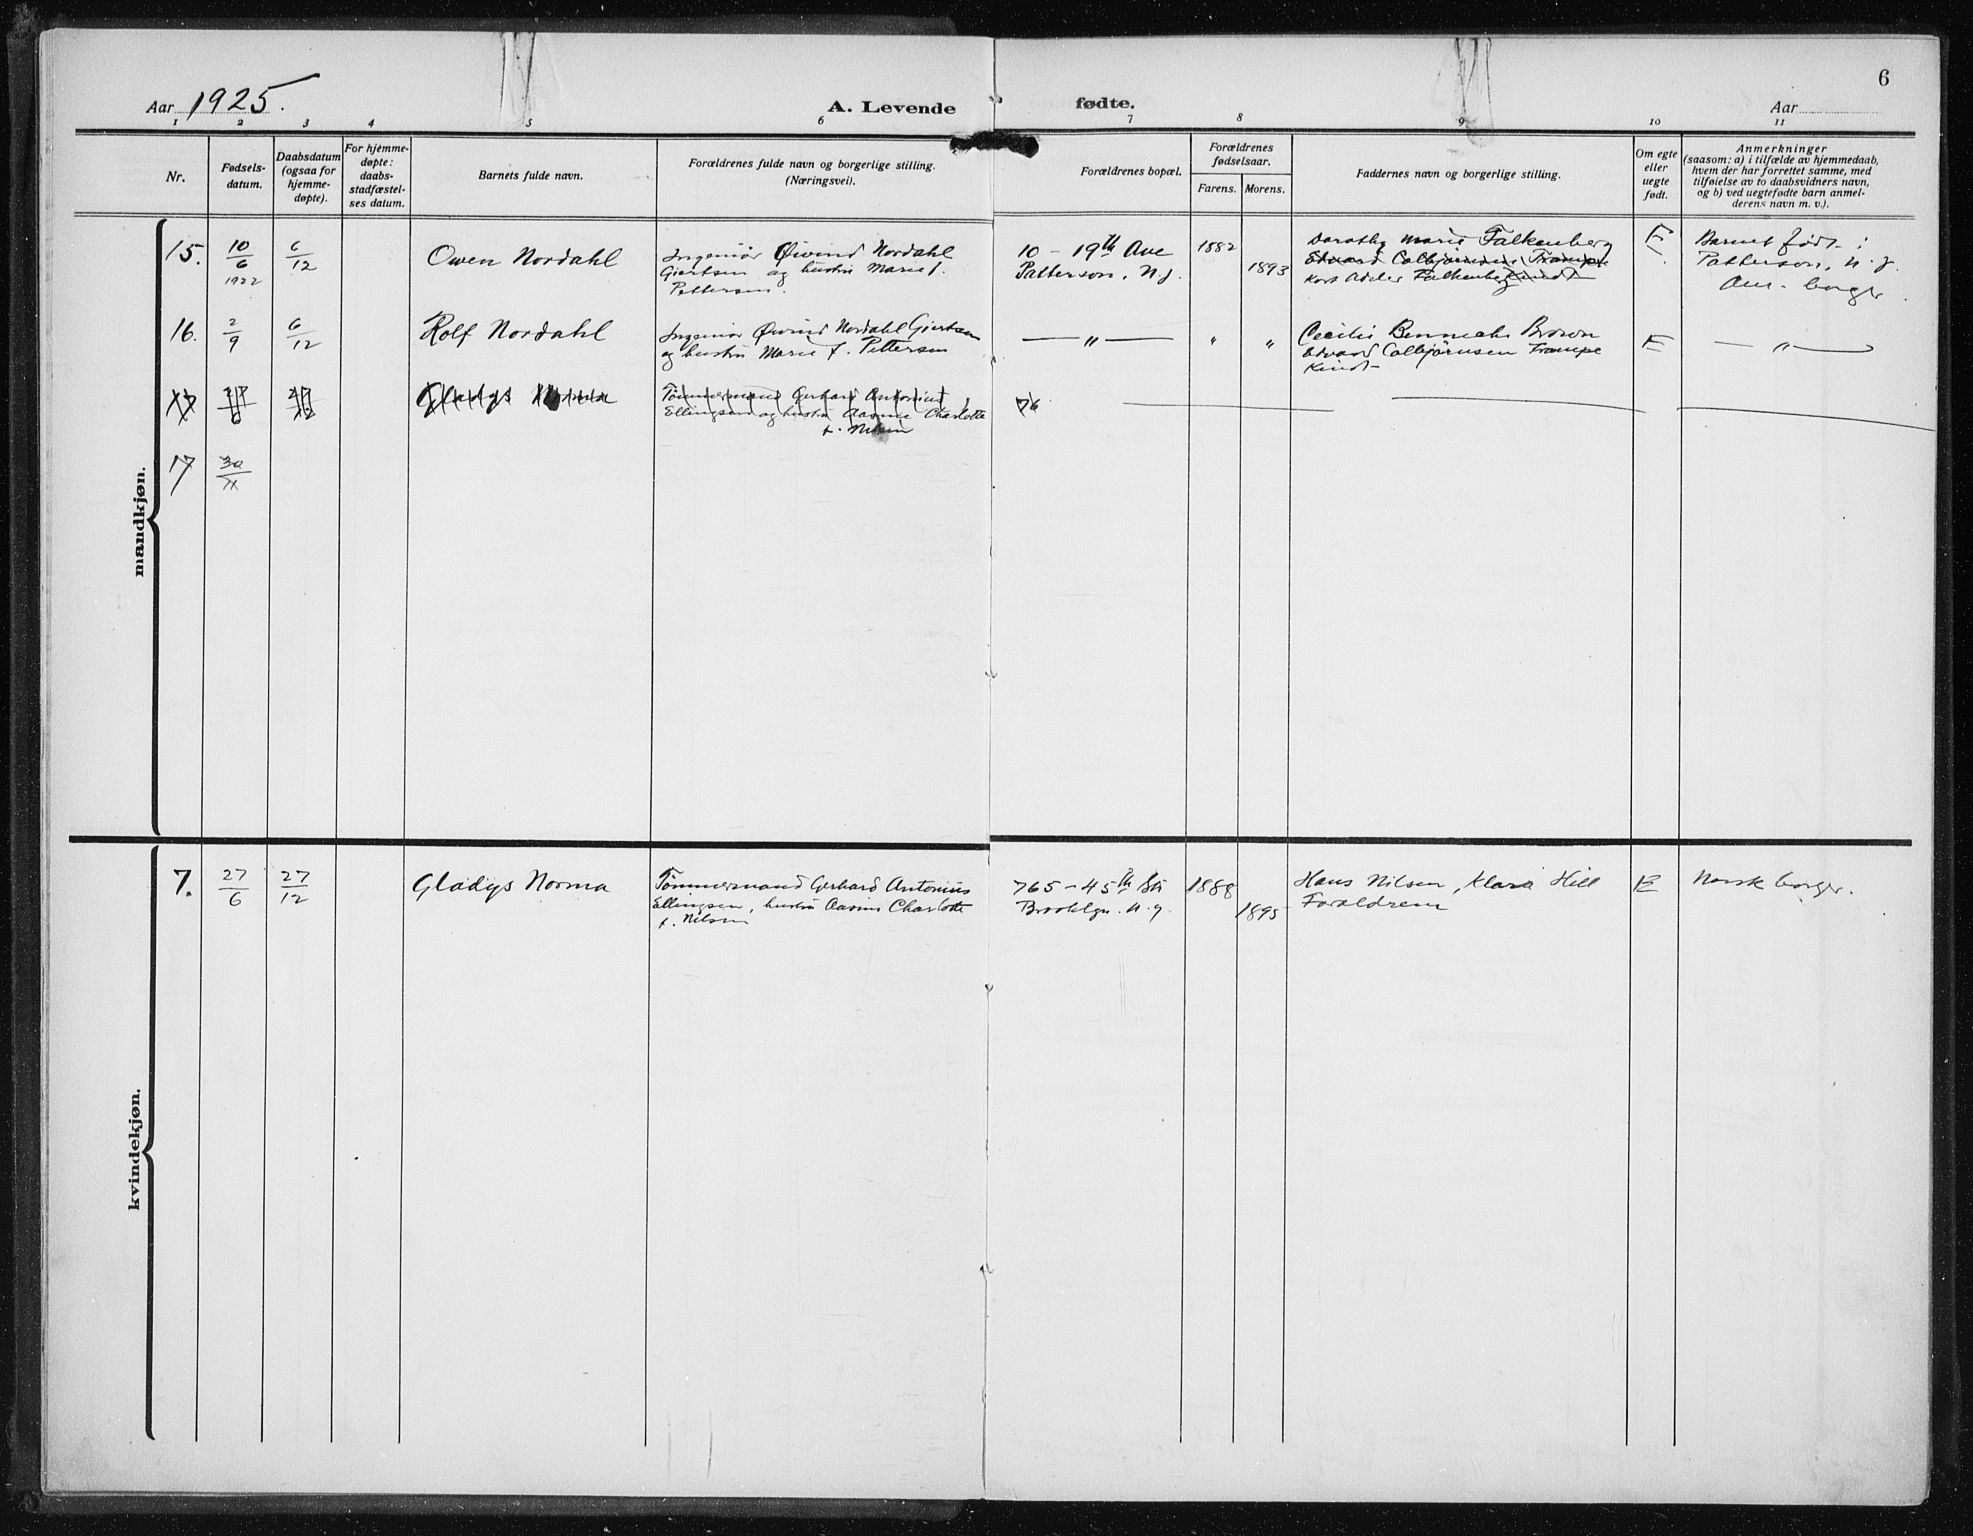 Aar 1925. A. Levende fødte. Aar 6
1 2 3 4 5 6 7 8 9 10 11
Nr.
Fødsels-
datum.
Daabsdatum
(ogsaa for
hjemme-
døpte).
For hjemme-
døpte:
daabs-
stadfæstel-
ses datum.
Barnets fulde navn.
Forældrenes fulde navn og borgerlige stilling.
(Næringsvei).
Forældrenes bopæl.
Forældrenes
fødselsaar.
Farens. Morens.
Faddernes navn og borgerlige stilling.
Om egte
eller
uegte
født.
Anmerkninger
(saasom: a) i tilfælde av hjemmedaab,
hvem der har forrettet samme, med
tilføielse av to daabsvidners navn,
og b) ved uegtefødte barn anmel-
derens navn m. v.).
mandkjøn.
15.
10/6
1922
6/12
Owen Nordahl
Ingeniør Øivind Nordahl
Giertsen og hustru Marie f.
Pettersen.
10 - 19th Ave
Patterson, N.J.
1882
1893
Dorothy Marie Falkenberg
Edvard Colbjørnsen Trampe
Kort Adeler Falkenberg Kindt
E
Barnet født i
Patterson, N.J.
Am. borger.
16.
2/9
6/12
Rolf Nordahl
Ingeniør Øivind Nordahl Giertsen
og hustru Marie f. Pettersen
— " —
"
"
Cecilie Brown
Edvard Colbjørnsen Trampe
Kindt
E
— " —
17
27/6
27/12
Gladys Norma
Tømmermand Gerhard Antonius
Ellingsen og hustru Charlotte
f. Nilsen
76
17
30
kvindekjøn.
7.
27/6
27/12
Gladys Norma
Tømmermand Gerhard Antonius
Ellingsen, hustru Charlotte
f. Nilsen
765 - 45th Str
Brooklyn. N.Y.
1888
1895
Hans Nilsen, Klara Hill
Forældrene
E
Norsk borger.